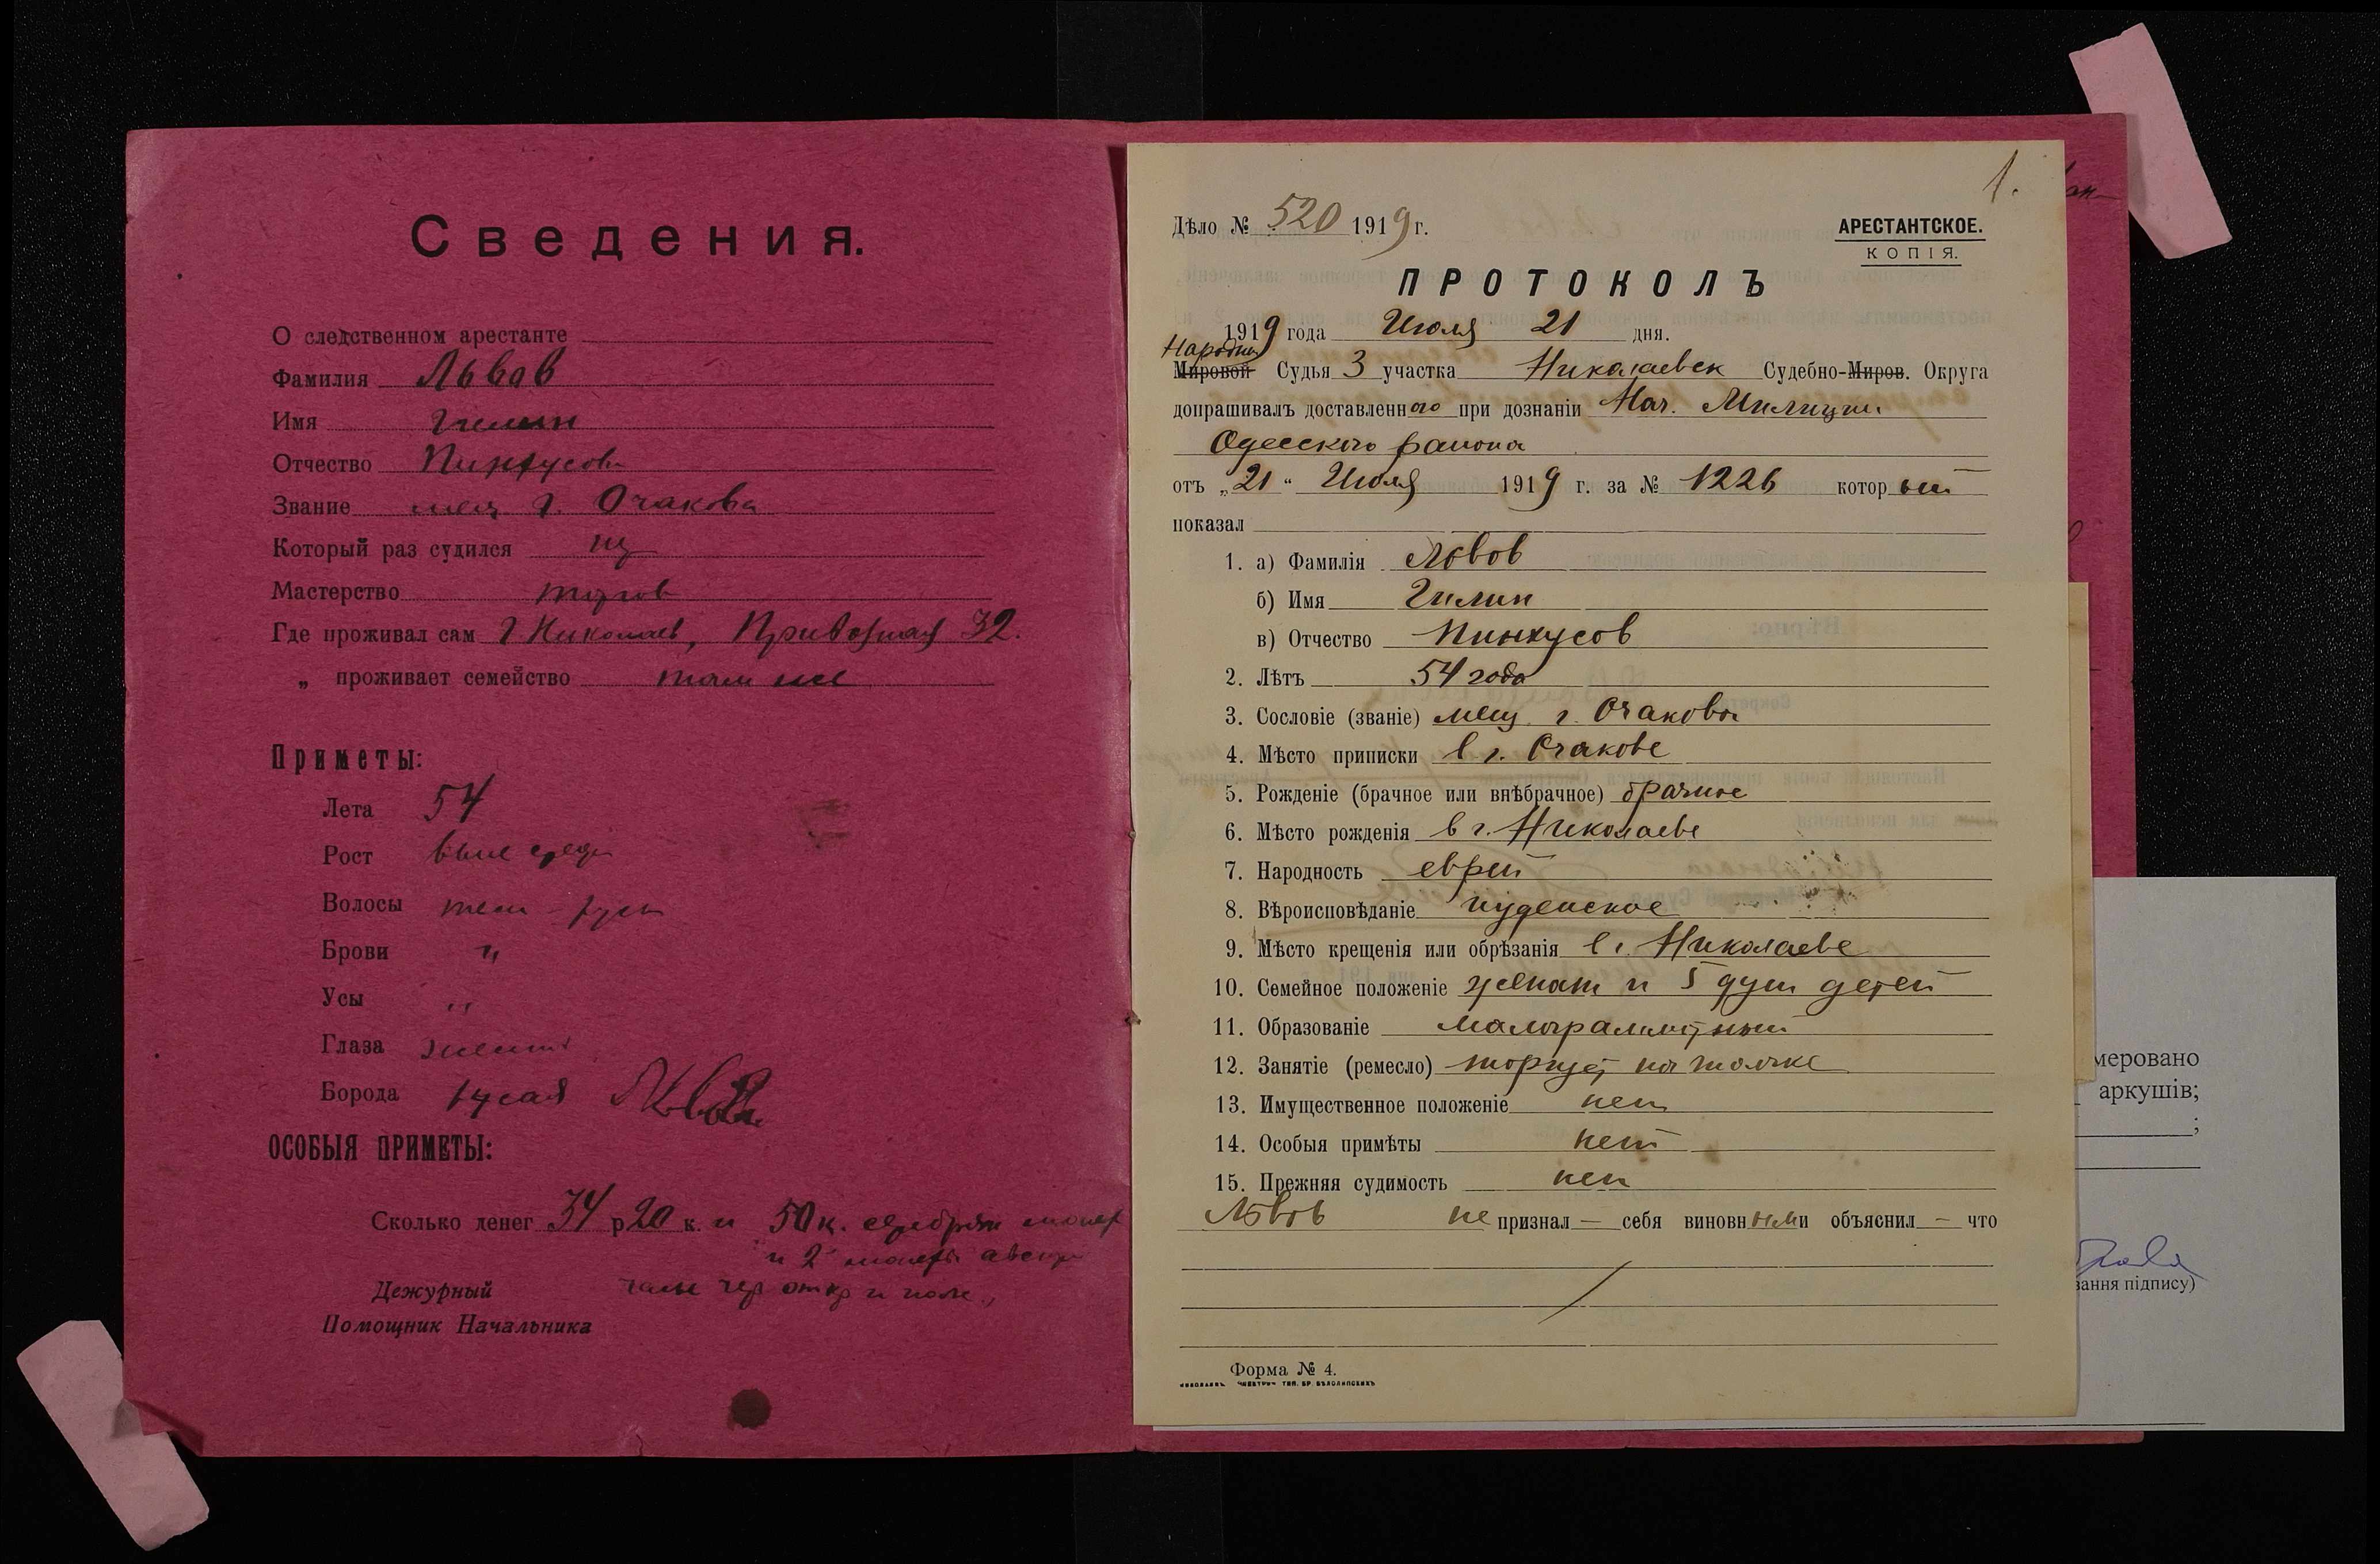 Сведения.
О следственном арестанте
Фамилия Львов
Имя Гилин
Отчество Пинкусов
Звание мещ г. Очакова
Который раз судился
Мастерство торгов
Где проживал сам г. Николаев, Привозная 32.
„ проживает семейство там же
Приметы:
Лета 54
Рост выше средн
Волосы темн - рус
Брови "
Усы "
Глаза
Борода русая
ОСОБЫЯ ПРИМЕТЫ:
Сколько денег 34 р 20 к. и 50 к. серебрян монет
и 2 монеты австр
часы чер откр и
Дежурный
Помощник Начальника
1.
Дѣло № 520 1919 г.
АРЕСТАНТСКОЕ.
КОПІЯ.
ПРОТОКОЛЪ
1919 года Июля 21 дня.
Народный
Мировой Судья 3 участка Николаевск Судебно-Миров. Округа
допрашивалъ доставленного при дознаніи Нач. Милиции
Одесского района
отъ „21“ Июля 1919 г. за № 1226 который
показал
1. а) Фамилія Львов
б) Имя Гилин
в) Отчество Пинкусов
2. Лѣтъ 54 года
3. Сословіе (званіе) мещ. г. Очакова
4. Мѣсто приписки в г. Очакове
5. Рожденіе (брачное или внѣбрачное) брачное
6. Мѣсто рожденія в г. Николаеве
7. Народность еврей
8. Вѣроисповѣданіе иудейское
9. Мѣсто крещенія или обрѣзанія в г. Николаеве
10. Семейное положеніе женат и 5 душ детей
11. Образованіе малограмотный
12. Занятіе (ремесло) торгует на толчке
13. Имущественное положеніе нет
14. Особыя примѣты нет
15. Прежняя судимость нет
Львов не признал — себя виновным и объяснил — что
Форма № 4.
меровано
аркушів;
;
вання підпису)